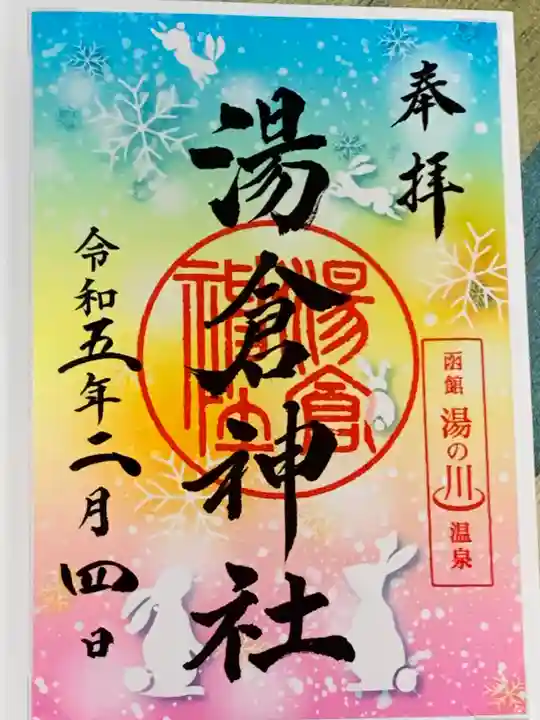 奉拝
函館 湯の川 温泉
湯倉神社
湯倉神社
令和五年二月四日